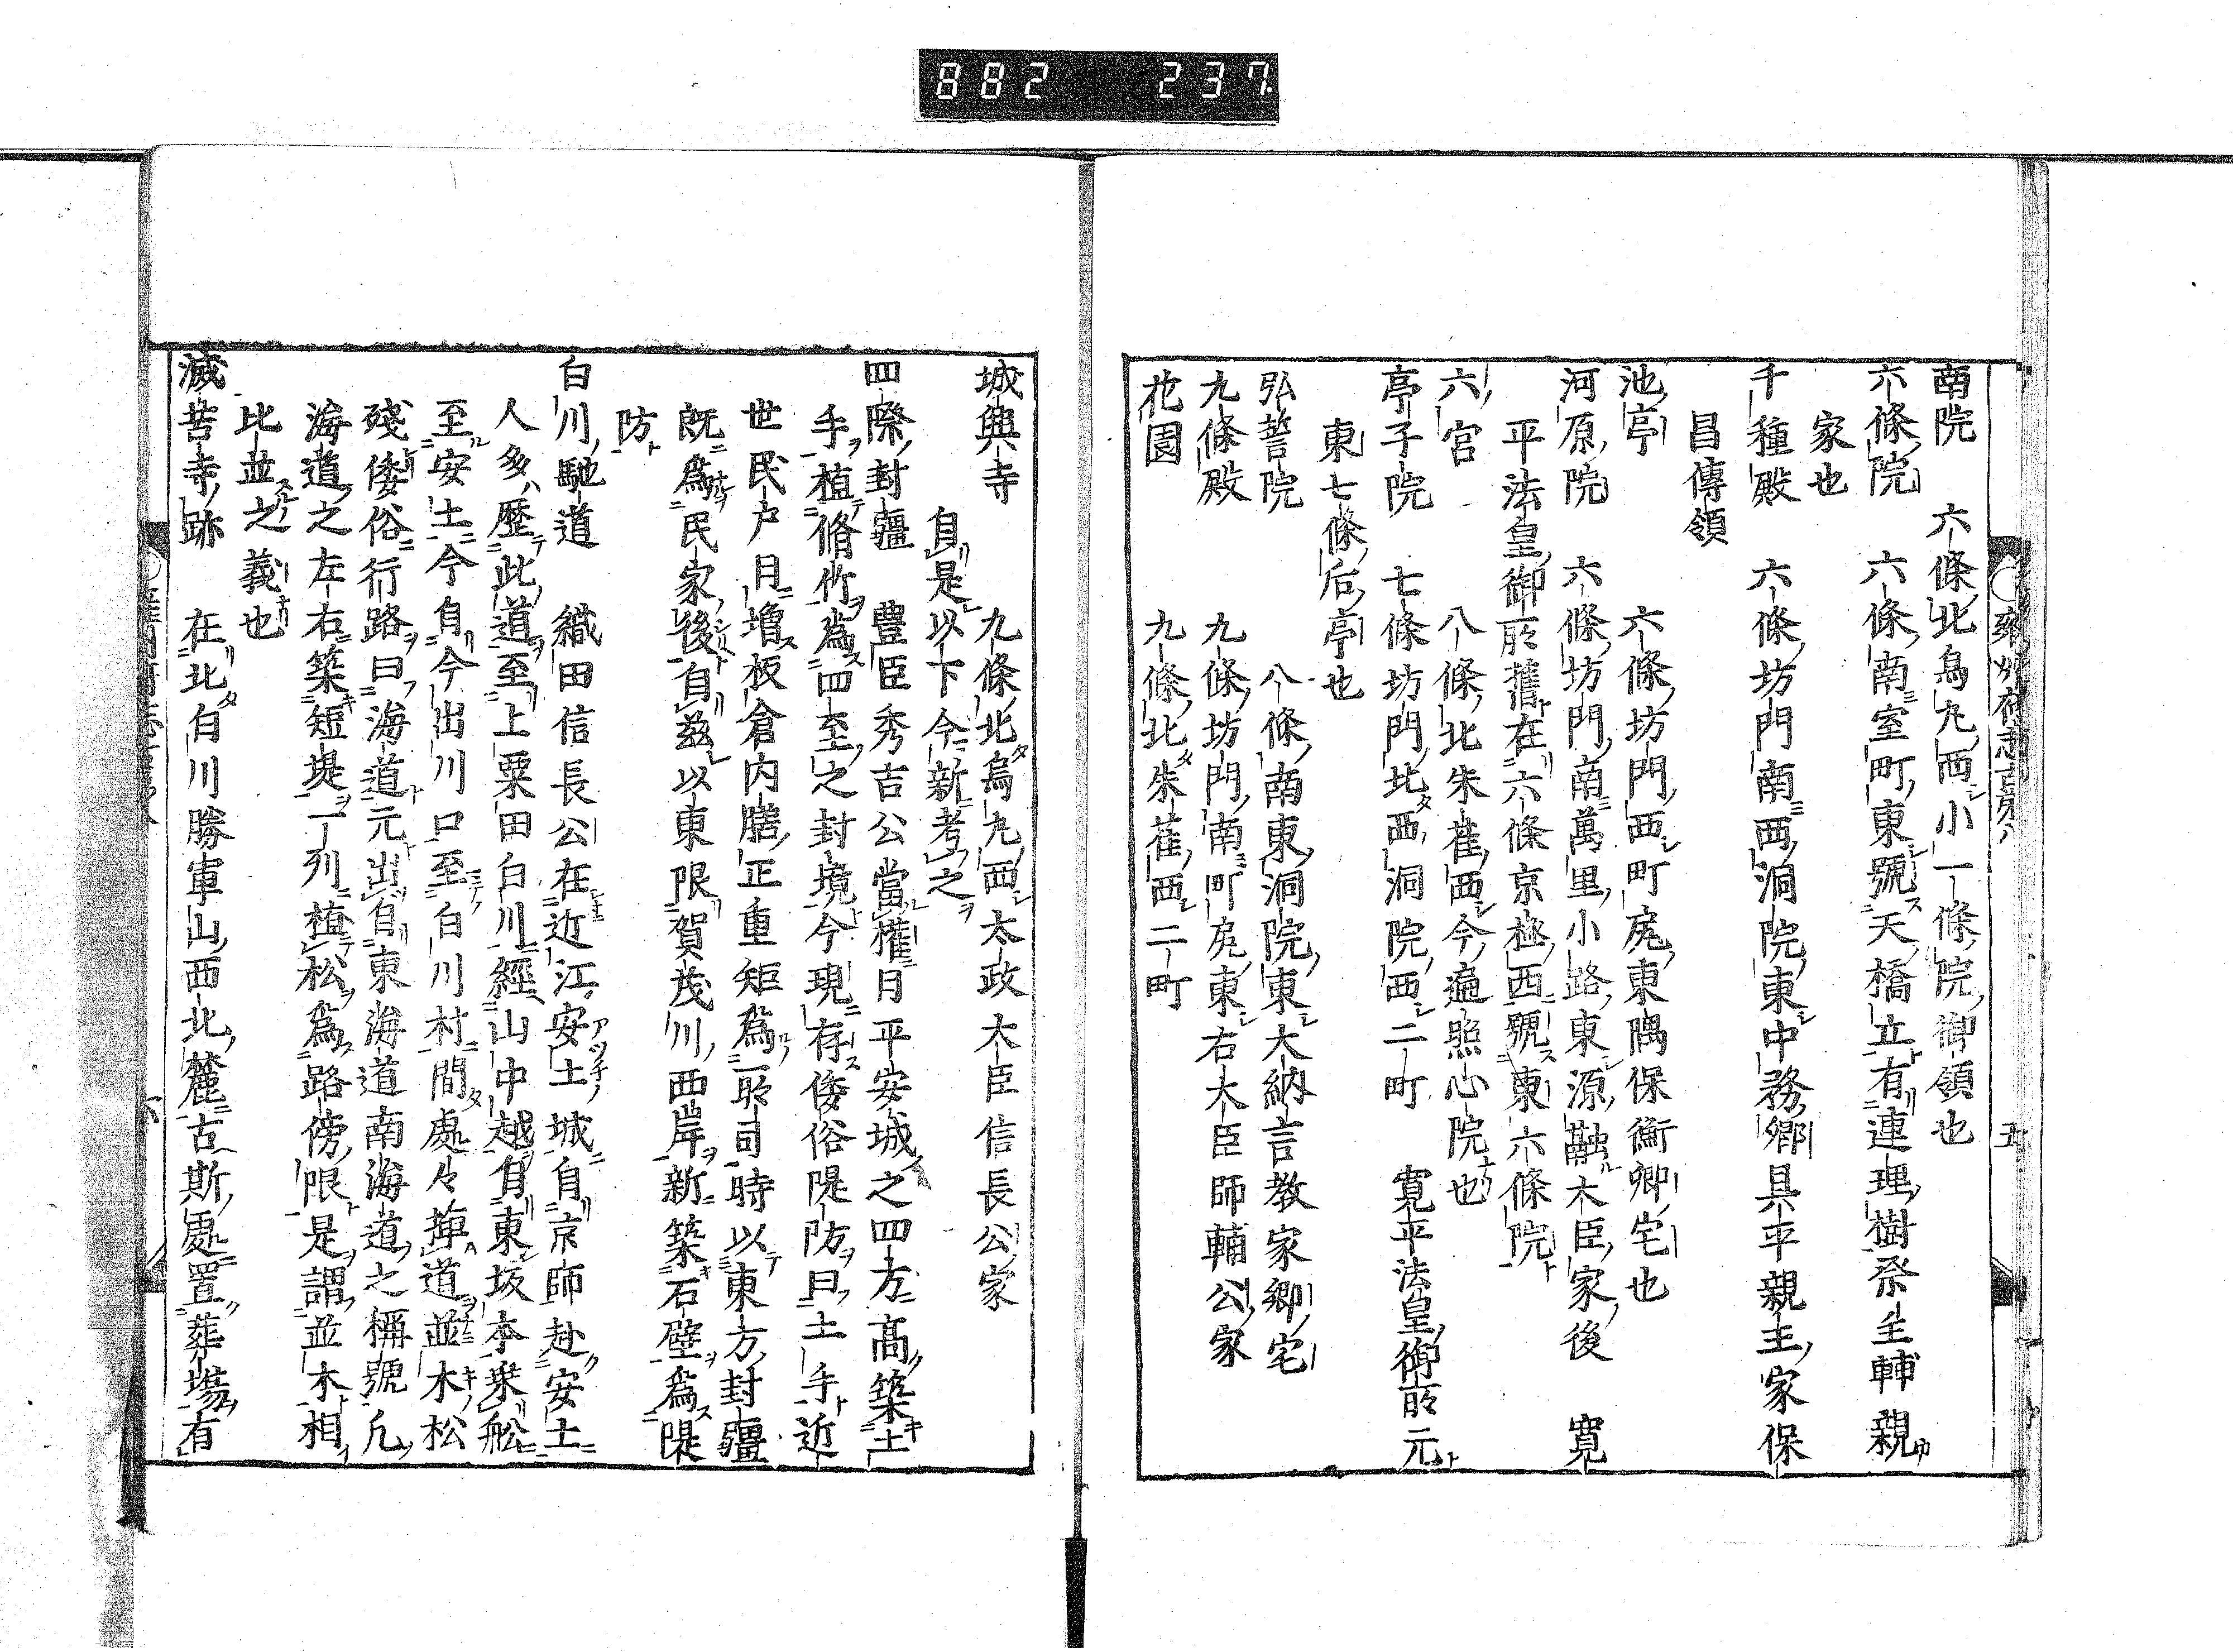 882 237
雍州府志古跡 五
南院 六條北烏丸西小一條院御領也
六條院 六條南室町東號天橋立有連理樹祭主輔親
家也
千種殿 六條坊門南西洞院東中務卿具平親王家保
昌傳領
池亭 六條坊門西町尻東隅保衡卿宅也
河原院 六條坊門南萬里小路東源融大臣家後 寛
平法皇御所舊在六條京極西號東六條院
六宮 八條北朱雀西今遍照心院也
亭子院 七條坊門北西洞院西二町 寛平法皇御所元
東七條后亭也
弘誓院 八條南東洞院東大納言教家卿宅
九條殿 九條坊門南町尻東右大臣師輔公家
花園 九條北朱雀西二町
城興寺 九條北烏丸西太政大臣信長公家
自是以下今新考之
四際封疆 豊臣秀吉公當權日平安城之四方高築土
手植脩竹爲四至之封境今現存俊俗隄防曰土手近
世民戸月増板倉内膳正重矩爲所司時以東方封疆
既爲民家後自兹以東限賀茂川西岸新築石壁爲隄
防
白川馳道 織田信長公在近江安土城自京師赴安土
人多歴此道至上粟田白川經山中越自東坂本乗舩
至安土今自今出川口至白川村間處々海道並木松
殘倭俗行路曰海道元出自東海道南海道之稱號凡
海道之左右築短堤一列植松爲路傍限是謂並木相
比並之義也
滅苦寺跡 在北白川勝軍山西北麓古斯處置葬場有
六